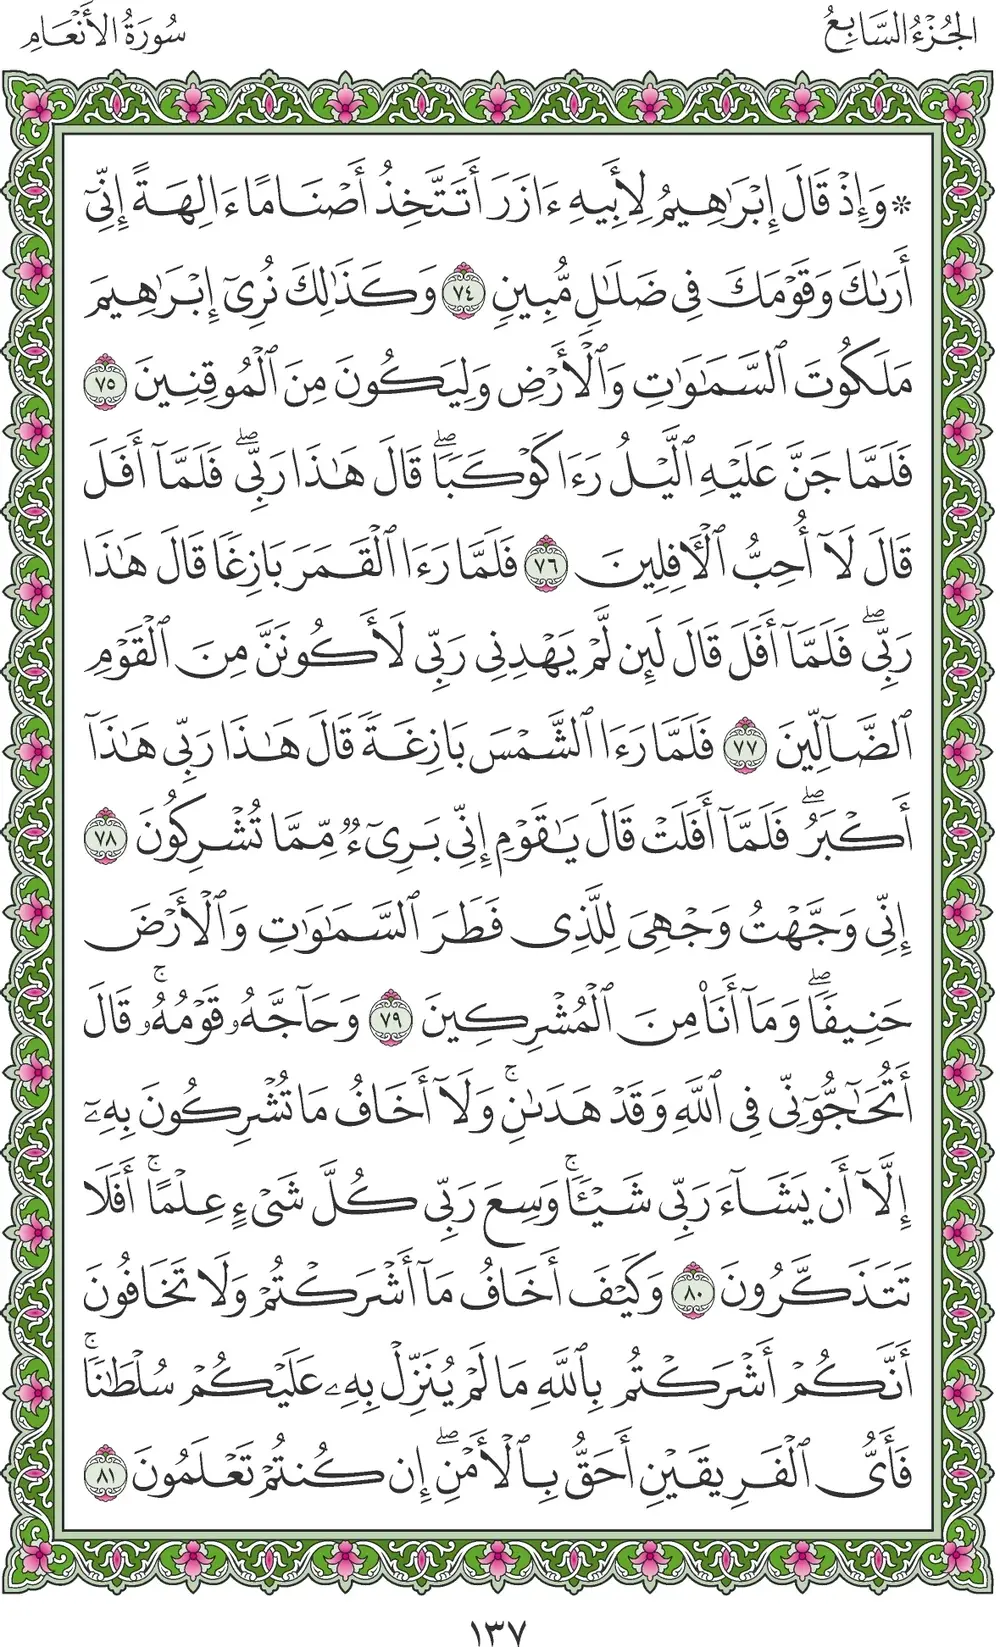 الجُزْءُ السَّابِعُ
سُورَةُ الأَنْعَامِ
۞ وَإِذْ قَالَ إِبْرَٰهِيمُ لِأَبِيهِ ءَازَرَ أَتَتَّخِذُ أَصْنَامًا ءَالِهَةً إِنِّىٓ
أَرَىٰكَ وَقَوْمَكَ فِى ضَلَٰلٍ مُّبِينٍ ٧٤ وَكَذَٰلِكَ نُرِىٓ إِبْرَٰهِيمَ
مَلَكُوتَ ٱلسَّمَٰوَٰتِ وَٱلْأَرْضِ وَلِيَكُونَ مِنَ ٱلْمُوقِنِينَ ٧٥
فَلَمَّا جَنَّ عَلَيْهِ ٱلَّيْلُ رَءَا كَوْكَبًاۖ قَالَ هَٰذَا رَبِّىۖ فَلَمَّآ أَفَلَ
قَالَ لَآ أُحِبُّ ٱلْءَافِلِينَ ٧٦ فَلَمَّا رَءَا ٱلْقَمَرَ بَازِغًا قَالَ هَٰذَا
رَبِّىۖ فَلَمَّآ أَفَلَ قَالَ لَئِن لَّمْ يَهْدِنِى رَبِّى لَأَكُونَنَّ مِنَ ٱلْقَوْمِ
ٱلضَّآلِّينَ ٧٧ فَلَمَّا رَءَا ٱلشَّمْسَ بَازِغَةً قَالَ هَٰذَا رَبِّى هَٰذَآ
أَكْبَرُۖ فَلَمَّآ أَفَلَتْ قَالَ يَٰقَوْمِ إِنِّى بَرِىٓءٌ مِّمَّا تُشْرِكُونَ ٧٨
إِنِّى وَجَّهْتُ وَجْهِىَ لِلَّذِى فَطَرَ ٱلسَّمَٰوَٰتِ وَٱلْأَرْضَ
حَنِيفًاۖ وَمَآ أَنَا۠ مِنَ ٱلْمُشْرِكِينَ ٧٩ وَحَآجَّهُۥ قَوْمُهُۥۚ قَالَ
أَتُحَٰٓجُّوٓنِّى فِى ٱللَّهِ وَقَدْ هَدَىٰنِۚ وَلَآ أَخَافُ مَا تُشْرِكُونَ بِهِۦٓ
إِلَّآ أَن يَشَآءَ رَبِّى شَيْـًٔاۚ وَسِعَ رَبِّى كُلَّ شَىْءٍ عِلْمًاۚ أَفَلَا
تَتَذَكَّرُونَ ٨٠ وَكَيْفَ أَخَافُ مَآ أَشْرَكْتُمْ وَلَا تَخَافُونَ
أَنَّكُمْ أَشْرَكْتُم بِٱللَّهِ مَا لَمْ يُنَزِّلْ بِهِۦ عَلَيْكُمْ سُلْطَٰنًاۚ
فَأَىُّ ٱلْفَرِيقَيْنِ أَحَقُّ بِٱلْأَمْنِۖ إِن كُنتُمْ تَعْلَمُونَ ٨١
١٣٧